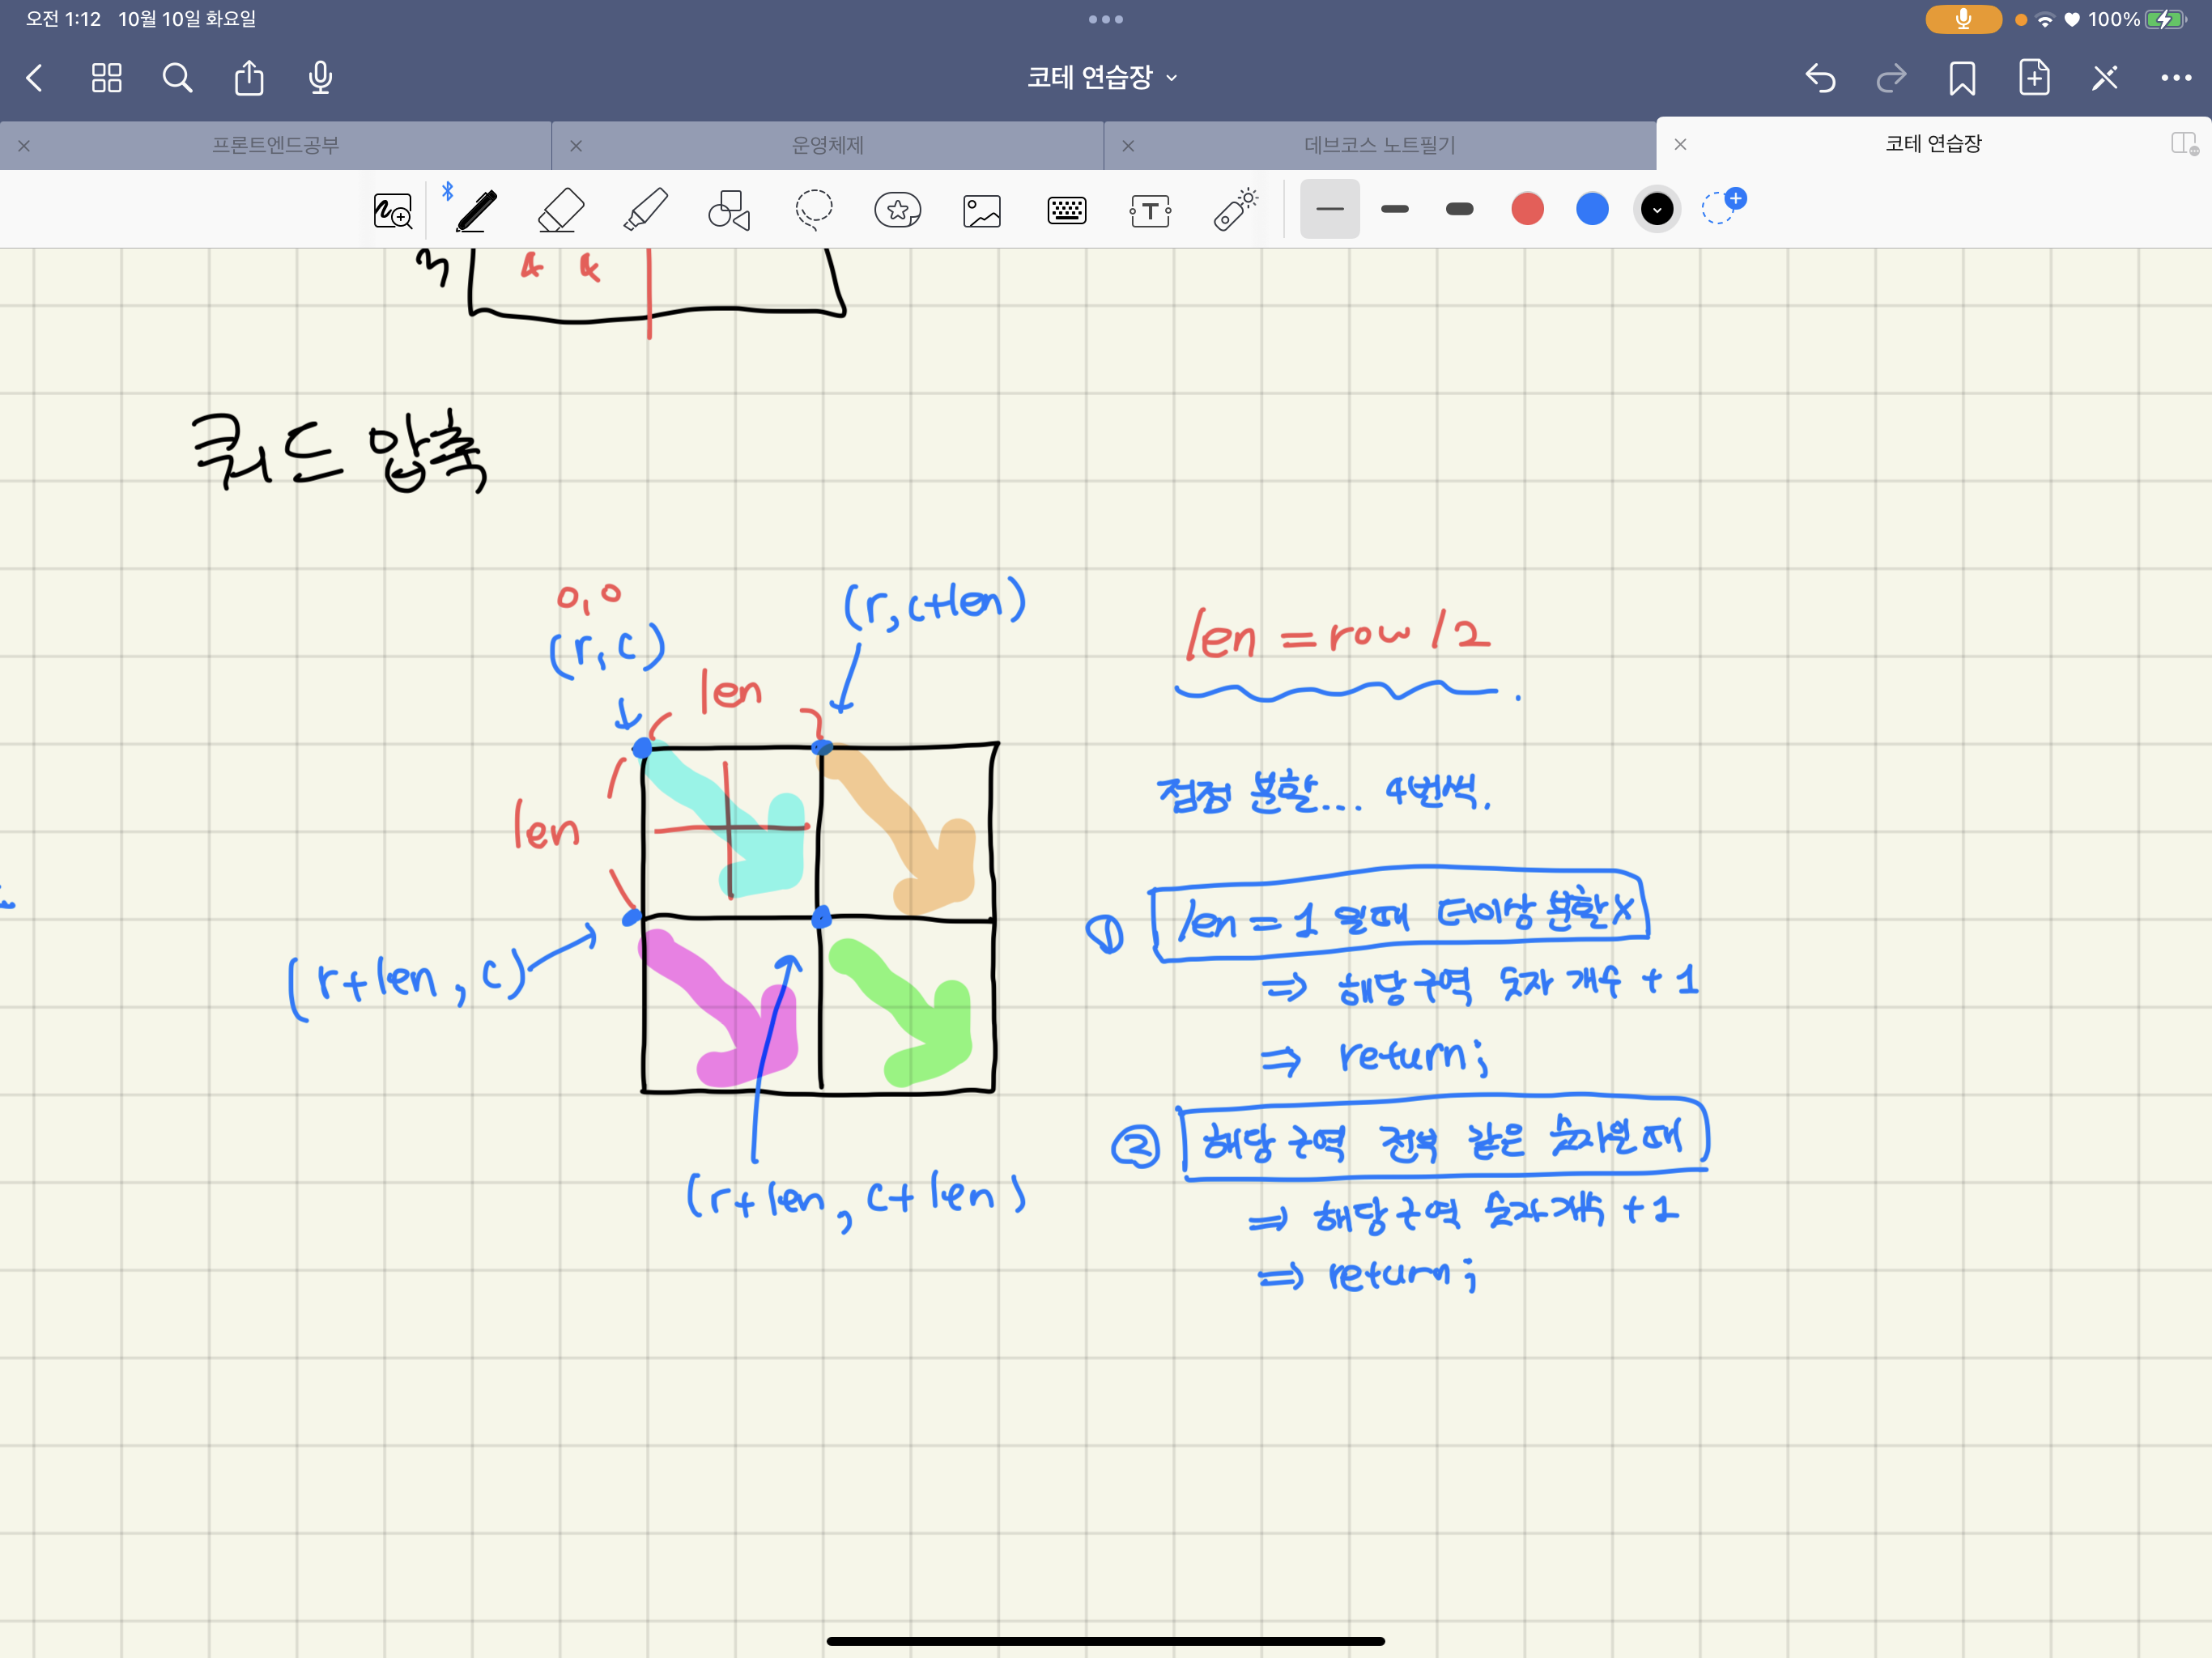 오전 1:12 10월 10일 화요일
100%
코테 연습장
프론트엔드공부
운영체제
데브코스 노트필기
코테 연습장
n
4 4
쿼드 압축
0,0
(r,c)
(r,c+len)
len
len
(r+len,c)
(r+len,c+len)
len=row/2
점점 분할... 4번씩.
① len=1 일때 더이상 분할X
⇒ 해당구역 숫자 개수 +1
⇒ return;
② 해당 구역 전부 같은 숫자일때
⇒ 해당구역 숫자개수 +1
⇒ return;